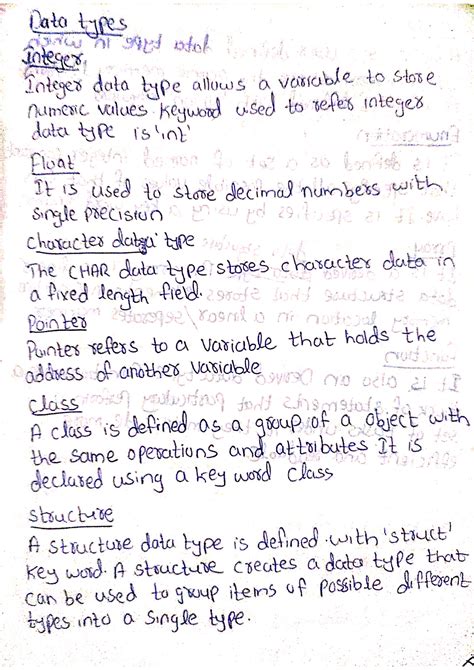 Data types
Integer
Integer data type allows a variable to store
numeric values. keyword used to refer integer
data type is 'int'
Float
It is used to store decimal numbers with
single precision
character data type
The CHAR data type stores character data in
a fixed length field.
Pointer
Pointer refers to a variable that holds the
address of another variable
Class
A class is defined as a group of a object with
the same operations and attributes It is
declared using a key word class
structure
A structure data type is defined with 'struct'
key word. A structure creates a data type that
can be used to group items of possible different
types into a single type.